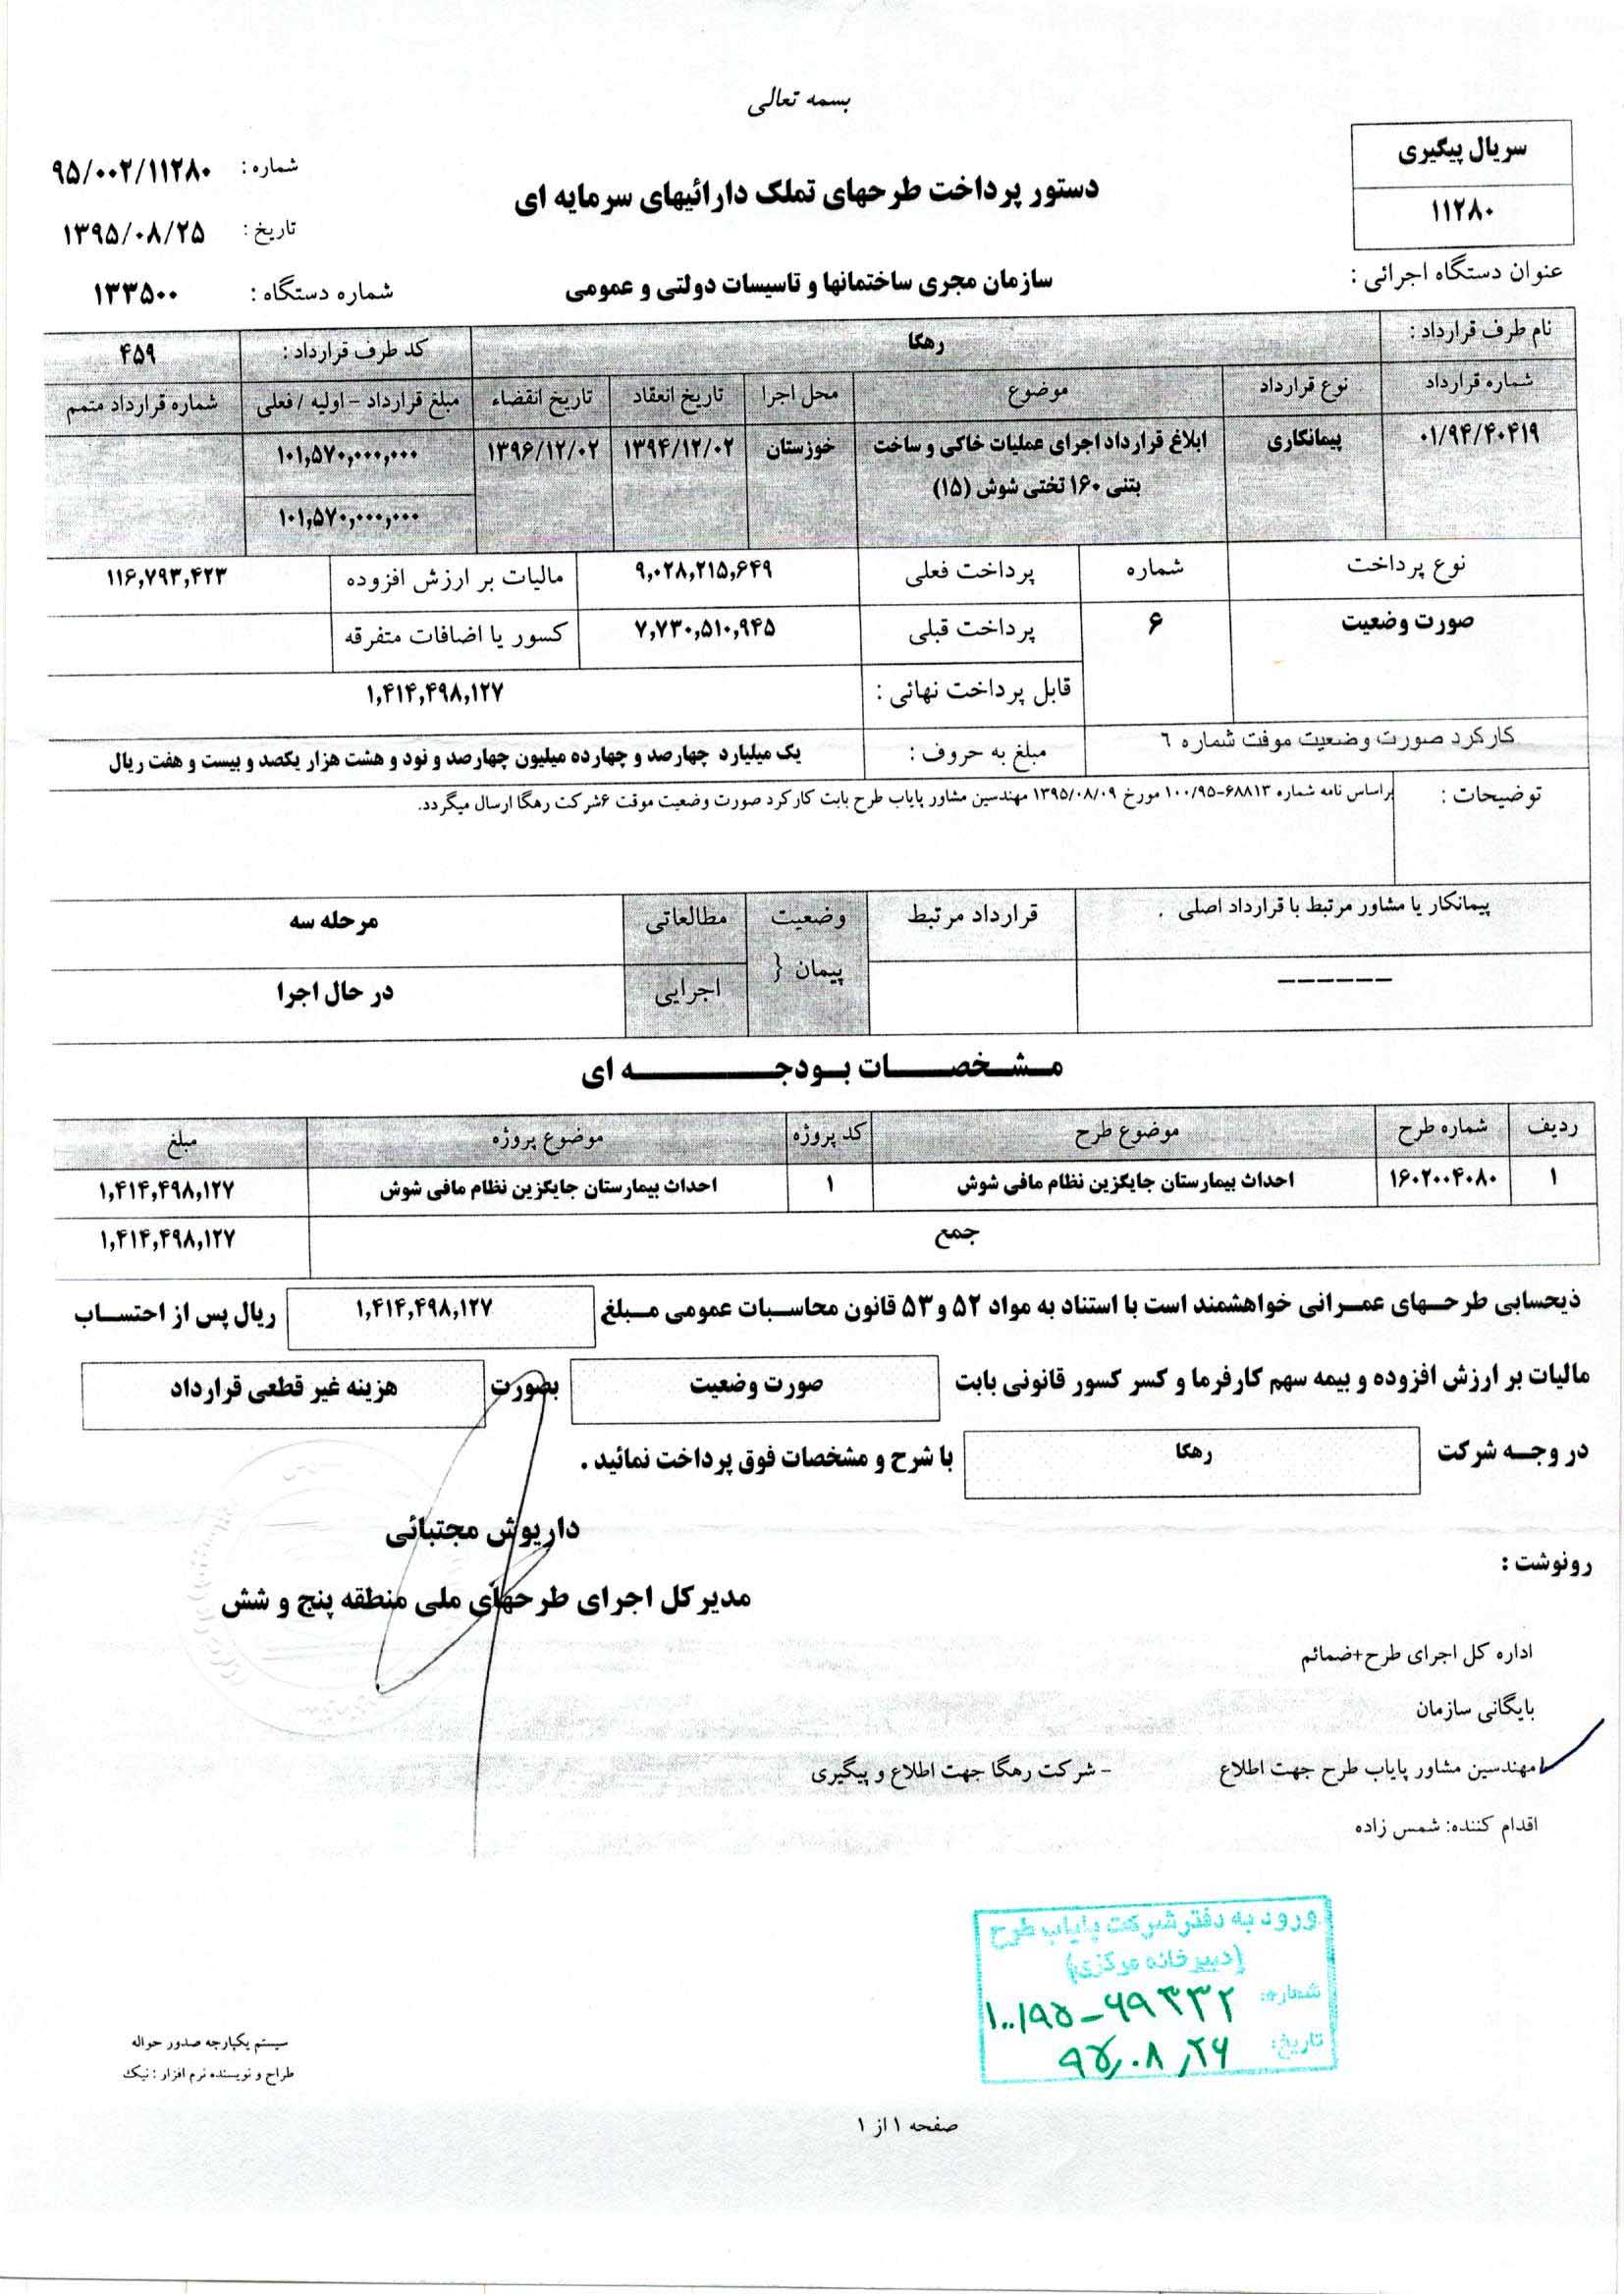 بسمه تعالی
سریال پیگیری
۱۱۲۸۰
دستور پرداخت طرحهای تملک دارائیهای سرمایه ای
شماره : ۹۵/۰۰۲/۱۱۲۸۰
تاریخ : ۱۳۹۵/۰۸/۲۵
عنوان دستگاه اجرائی : سازمان مجری ساختمانها و تاسیسات دولتی و عمومی شماره دستگاه : ۱۳۳۵۰۰
نام طرف قرارداد : رهگا کد طرف قرارداد : ۴۵۹
شماره قرارداد نوع قرارداد موضوع محل اجرا تاریخ انعقاد تاریخ انقضاء مبلغ قرارداد - اولیه / فعلی شماره قرارداد متمم
۰۱/۹۴/۴۰۴۱۹ پیمانکاری ابلاغ قرارداد اجرای عملیات خاکی و ساخت خوزستان ۱۳۹۴/۱۲/۰۲ ۱۳۹۶/۱۲/۰۲ ۱۰۱,۵۷۰,۰۰۰,۰۰۰
بتنی ۱۶۰ تختی شوش (۱۵) ۱۰۱,۵۷۰,۰۰۰,۰۰۰
نوع پرداخت شماره پرداخت فعلی ۹,۰۲۸,۲۱۵,۶۴۹ مالیات بر ارزش افزوده ۱۱۶,۷۹۳,۴۲۳
صورت وضعیت ۶ پرداخت قبلی ۷,۷۳۰,۵۱۰,۹۴۵ کسور یا اضافات متفرقه
قابل پرداخت نهائی : ۱,۴۱۴,۴۹۸,۱۲۷
کارکرد صورت وضعیت موقت شماره ۶ مبلغ به حروف : یک میلیارد چهارصد و چهارده میلیون چهارصد و نود و هشت هزار یکصد و بیست و هفت ریال
توضیحات : براساس نامه شماره ۶۸۸۱۳-۱۰۰/۹۵ مورخ ۱۳۹۵/۰۸/۰۹ مهندسین مشاور پایاب طرح بابت کارکرد صورت وضعیت موقت ۶شرکت رهگا ارسال میگردد.
پیمانکار یا مشاور مرتبط با قرارداد اصلی . قرارداد مرتبط وضعیت مطالعاتی مرحله سه
------ پیمان { اجرایی در حال اجرا
مـشـخصـــــات بـودجـــــــــه ای
ردیف شماره طرح موضوع طرح کد پروژه موضوع پروژه مبلغ
۱ ۱۶۰۲۰۰۴۰۸۰ احداث بیمارستان جایگزین نظام مافی شوش ۱ احداث بیمارستان جایگزین نظام مافی شوش ۱,۴۱۴,۴۹۸,۱۲۷
جمع ۱,۴۱۴,۴۹۸,۱۲۷
ذیحسابی طرحـــهای عمـــرانی خواهشمند است با استناد به مواد ۵۲ و ۵۳ قانون محاسبات عمومی مـــبلغ ۱,۴۱۴,۴۹۸,۱۲۷ ریال پس از احتســـاب
مالیات بر ارزش افزوده و بیمه سهم کارفرما و کسر کسور قانونی بابت صورت وضعیت بصورت هزینه غیر قطعی قرارداد
در وجـــه شرکت رهگا با شرح و مشخصات فوق پرداخت نمائید .
داریوش مجتبائی
مدیر کل اجرای طرحهای ملی منطقه پنج و شش
رونوشت :
اداره کل اجرای طرح+ضمائم
بایگانی سازمان
مهندسین مشاور پایاب طرح جهت اطلاع - شرکت رهگا جهت اطلاع و پیگیری
اقدام کننده: شمس زاده
ورود به دفتر شرکت پایاب طرح
(دبیرخانه مرکزی)
شماره: ۱۰۰/۹۵-۶۹۳۳۲
تاریخ: ۹۵,۰۸,۲۶
سیستم یکپارچه صدور حواله
طراح و نویسنده نرم افزار : نیک
صفحه ۱ از ۱